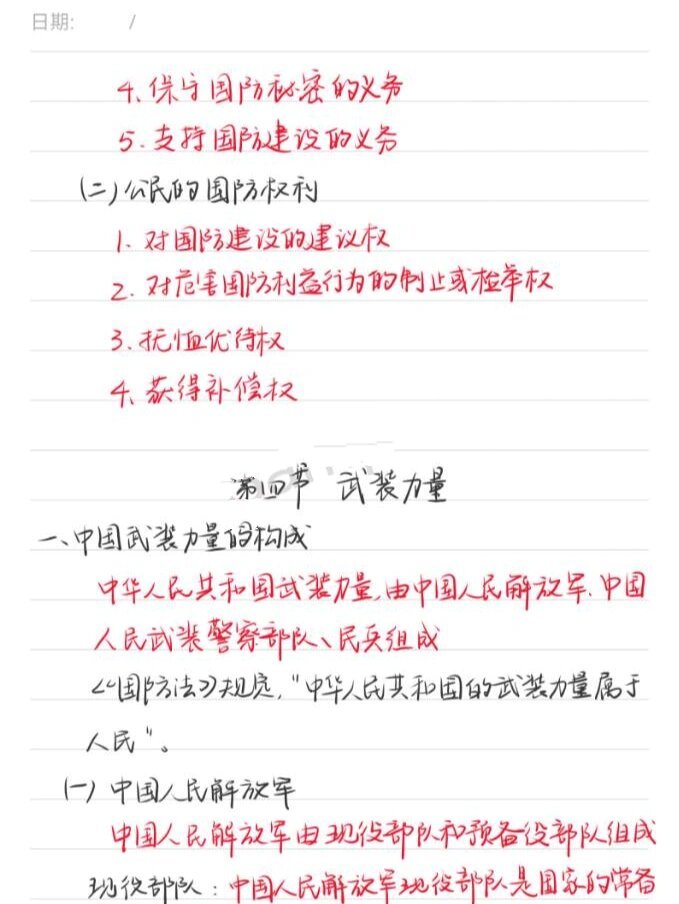 日期: /
4、保守国防秘密的义务
5.支持国防建设的义务
(二)公民的国防权利
1、对国防建设的建议权
2.对危害国防利益行为的制止或检举权
3.抚恤优待权
4、获得补偿权
第四节 武装力量
一、中国武装力量的构成
中华人民共和国武装力量,由中国人民解放军、中国
人民武装警察部队、民兵组成
《国防法》规定,"中华人民共和国的武装力量属于
人民"。
(一)中国人民解放军
中国人民解放军由现役部队和预备役部队组成
现役部队:中国人民解放军现役部队是国家的常备